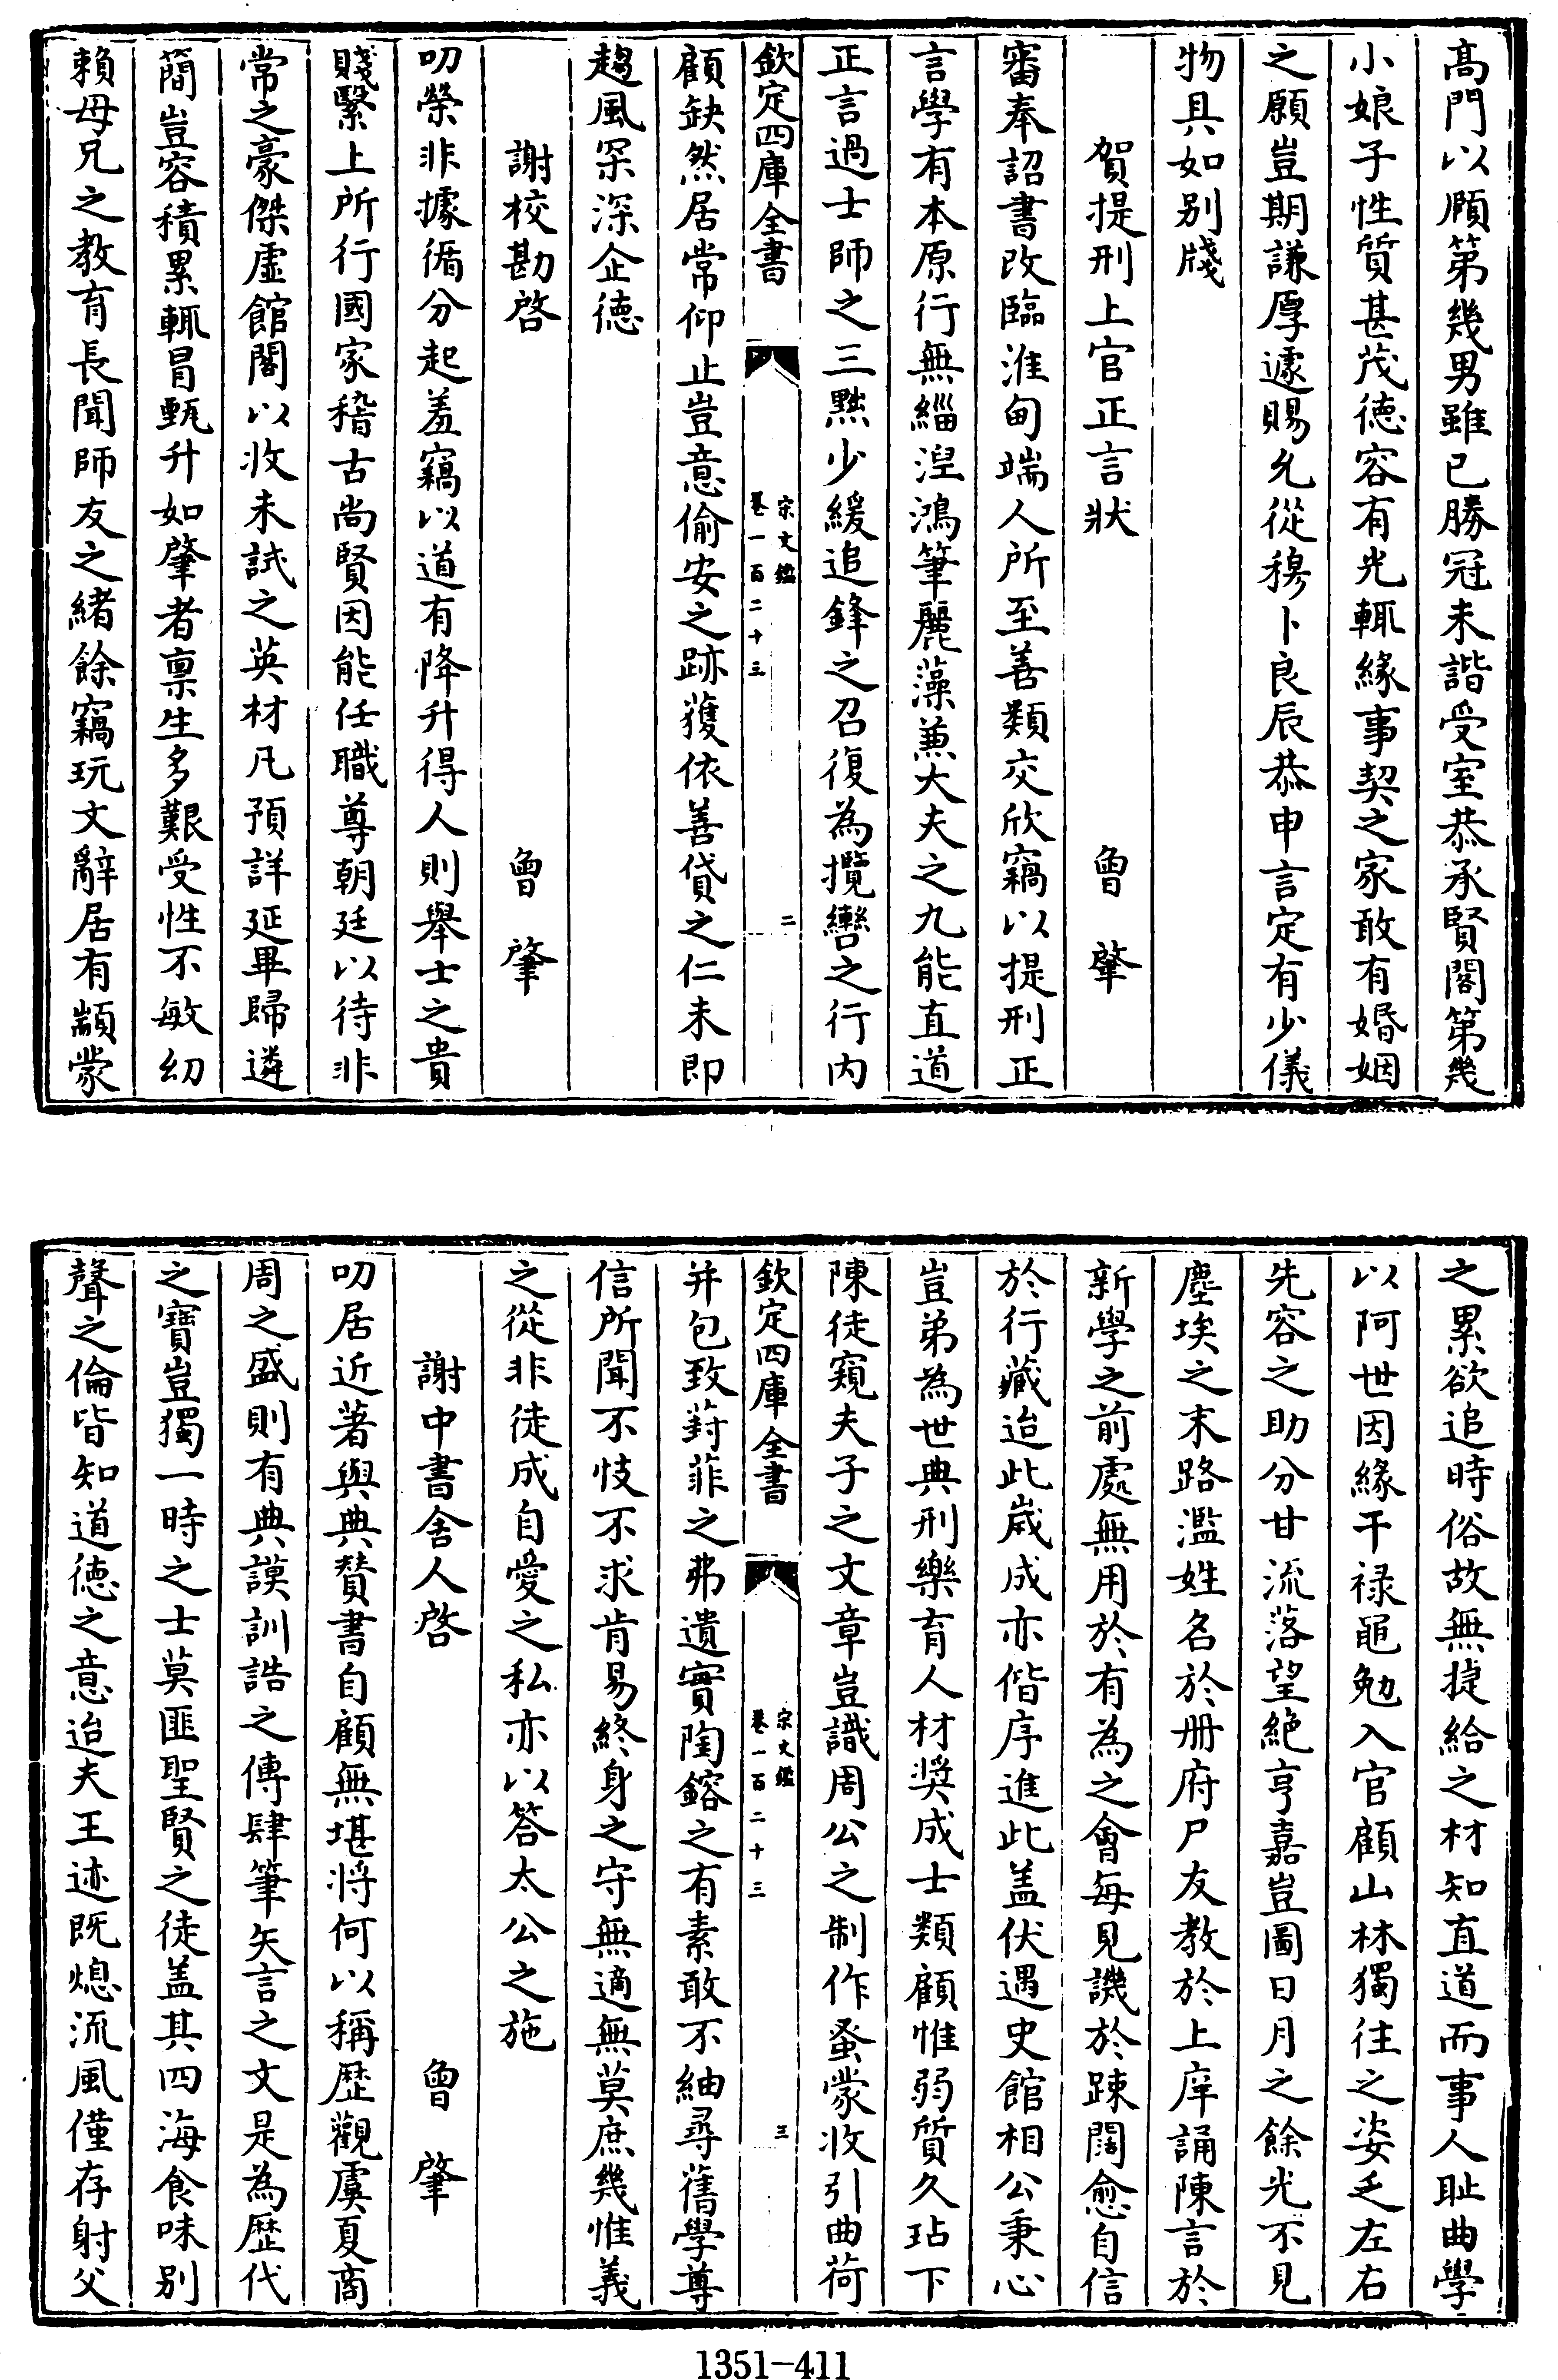 髙門以頋第幾男雖已勝冠未諧受室恭承賢閤第幾
小娘子性質甚茂徳容有光輒緣事契之家敢有婚姻
之願豈期謙厚遽賜允從穆卜良辰恭申言定有少儀
物具如别牋
賀提刑上官正言狀　曾肇
審奉詔書改臨淮甸端人所至善類交欣竊以提刑正
言學有本原行無緇涅鴻筆麗藻兼大夫之九能直道
正言過士師之三黜少緩追鋒之召復為攬轡之行内
欽定四庫全書　宋文鑑　卷一百二十三　二
顧缺然居常仰止豈意偷安之跡獲依善貸之仁未即
趨風罙深企徳
謝校勘啓　曾肇
叨榮非據循分起羞竊以道有降升得人則舉士之貴
賤繫上所行國家稽古尚賢因能任職尊朝廷以待非
常之豪傑虚館閣以收未試之英材凡預詳延畢歸遴
簡豈容積累輒冒甄升如肇者禀生多艱受性不敏幼
賴母兄之教育長聞師友之緒餘竊玩文辭居有顓蒙
之累欲追時俗故無捷給之材知直道而事人耻曲學
以阿世因緣干禄黽勉入官顧山林獨往之姿乏左右
先容之助分甘流落望絶亨嘉豈圖日月之餘光不見
塵埃之末路濫姓名於册府尸友教於上庠誦陳言於
新學之前處無用於有為之會每見譏於踈闊愈自信
於行藏迨此歳成亦偕序進此盖伏遇史館相公秉心
豈弟為世典刑樂育人材奨成士類顧惟弱質久玷下
陳徒窺夫子之文章豈識周公之制作蚤蒙收引曲荷
欽定四庫全書　宋文鑑　卷一百二十三　三
并包致葑菲之弗遺實陶鎔之有素敢不紬尋舊學尊
信所聞不忮不求肯易終身之守無適無莫庶幾惟義
之從非徒成自愛之私亦以答太公之施
謝中書舍人啓　曾肇
叨居近著與典贊書自顧無堪将何以稱歴觀虞夏商
周之盛則有典謨訓誥之傳肆筆矢言之文是為歴代
之寶豈獨一時之士莫匪聖賢之徒盖其四海食味别
聲之倫皆知道徳之意迨夫王迹既熄流風僅存射父
1351-411